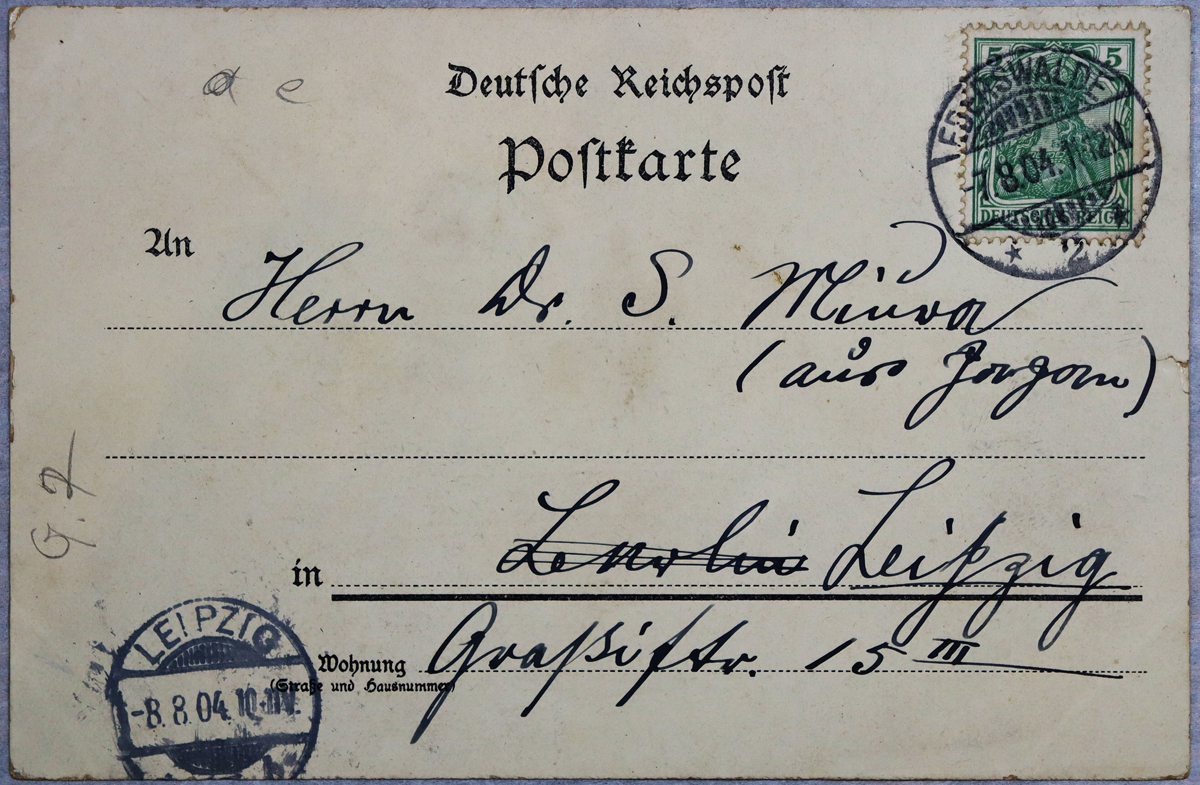 Deutsche Reichspost
Postkarte
5 5
EBERSWALDE
-7.8.04. 11-12N.
DEUTSCHES REICH
* 2 *
An Herrn Dr. S. Miura
(aus Japan)
in Leipzig
Wohnung Grassistr. 15 III
(Straße und Hausnummer)
G. 7
LEIPZIG
-8.8.04. 10-11V.